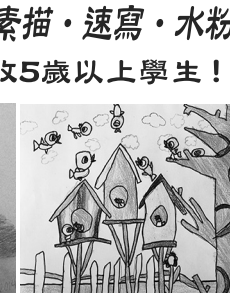 素描・速寫・水粉
收5歲以上學生！